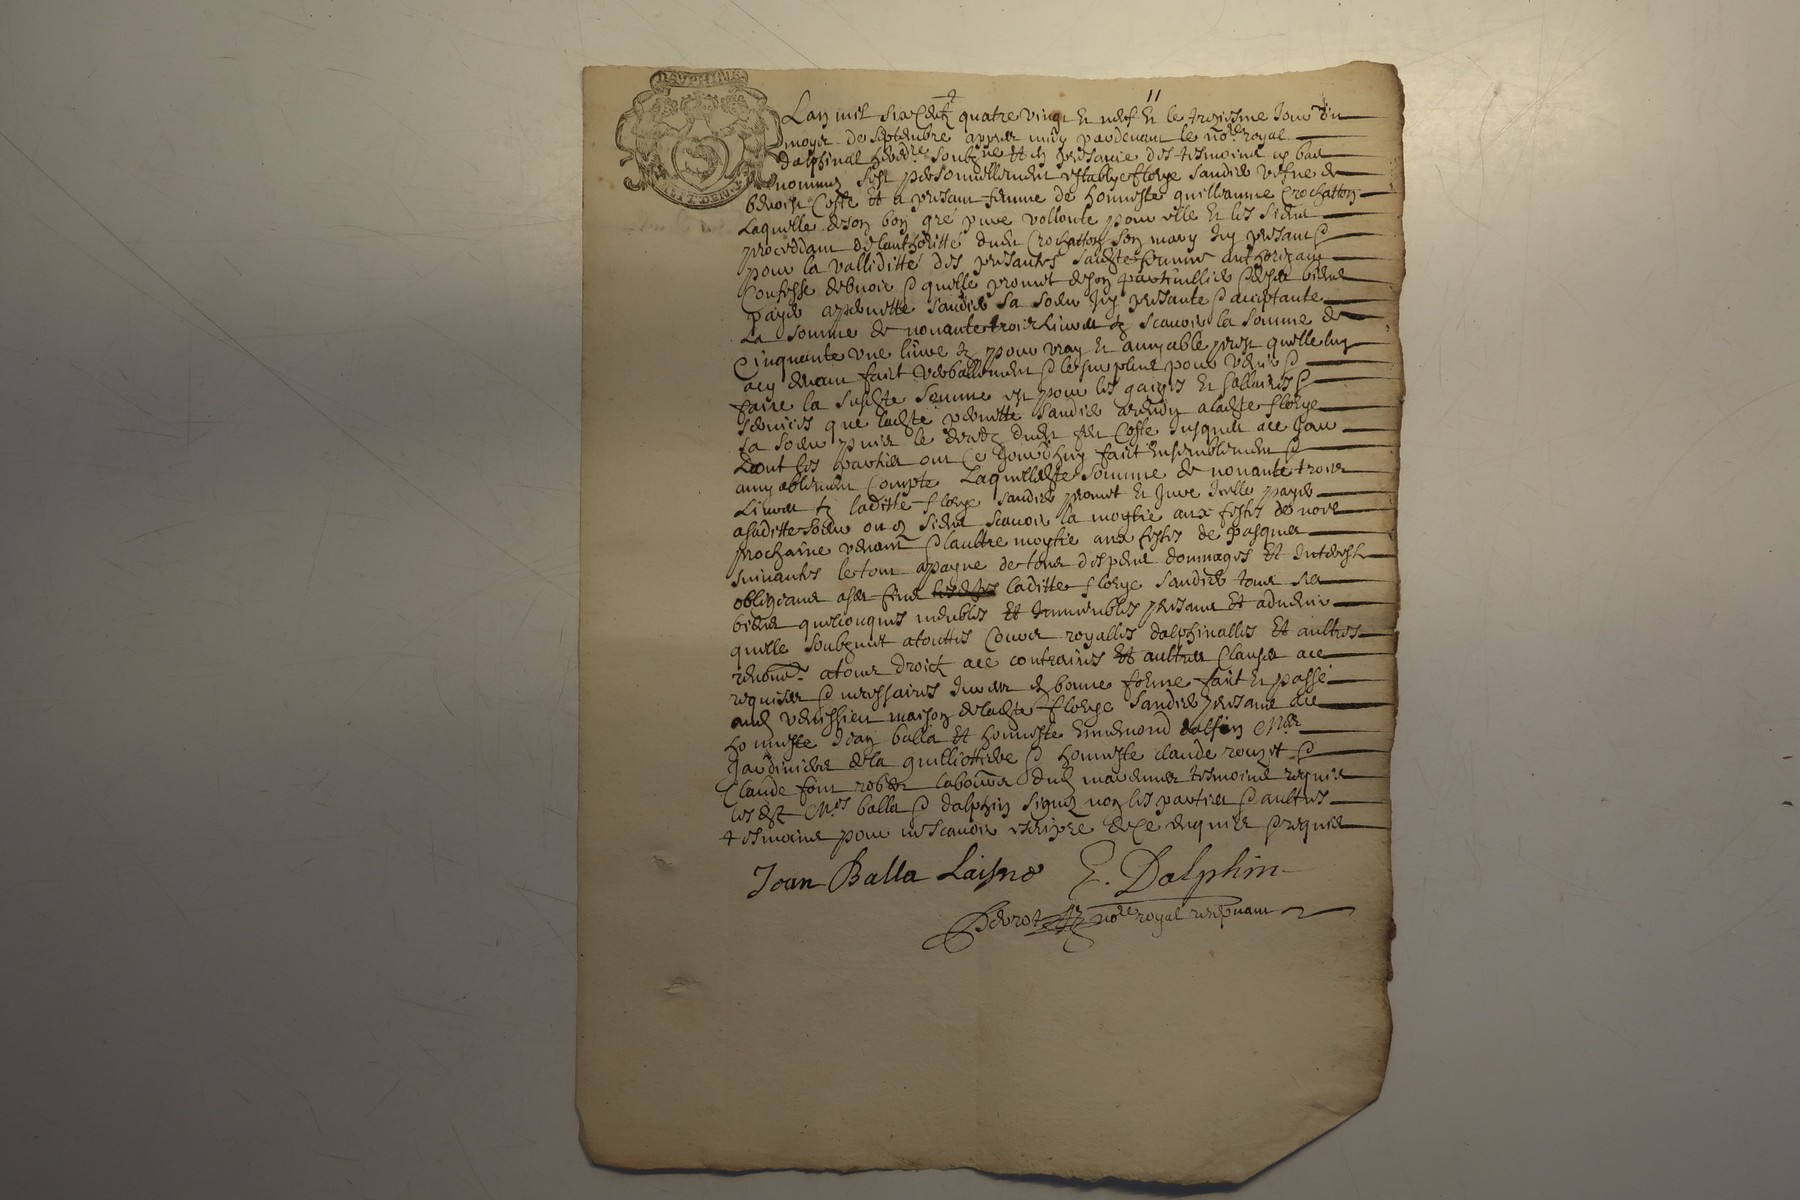 DAUPHINE
Lan mil six centz quatre vingt et neuf et le troisiesme Jour du
moys de septembre appres midy pardevant le no.re royal
dalphinal hered.re soubz.ne et en presance des tesmoins cy bas
nommes sest personnellement establye fleurye sandier vefve de
benoist Coste et a present femme de honneste guillaume Crochatton
Laquelle de son bon gré pure vollonté pour elle et les siens
proceddant de lauthoritté dudit Crochatton son mary Icy presant
pour la validitté des presantes sadite femme authorizant
Confesse debvoir quelle promet de son particullier biens
payer a pernette sandier sa soeur Icy presante acceptante
La somme de nonante trois Livres tz scavoir la somme de
Cinquante une livre tz pour vray et amyable prest quelle luy
a cy devant faict verballement le surplus pour venir
faire la susdite somme est pour les gaiges et sallaires
services que ladite pernette sandier a rendu a ladite fleurye
sa soeur puis le decedz dudit feu Coste Jusques a ce Jour
dont les parties ont ce Jourdhuy faict ensemblement
amyablement Compte Laquelle dite somme de nonante trois
Livres tz laditte fleurye sandier promet et Jure Icelle payer
a saditte soeur ou es siens scavoir la moytie aux festes de noel
prochaine venant laultre moytie aux festes de pasques
suivantes le tout a payne de tous despens dommages et Interestz
obligeant a ses fins laditte fleurye sandier tous ses
biens quelconques meubles et Immeubles presans et advenir
quelle soubzmet a touttes Cours royalles dalphinalles et aultres
renon.ce a tous droictz a ce contraires et aultres Clauses a ce
requises necessaires Jurées en bonne forme faict et passé
audit venissieu maison de ladite fleurye sandier presans a ce
honneste Jean balla et honneste ennemond dalfin M.es
Jardiniers de la guillottiere honneste claude rouzet
Claude labourer dudit tesmoins requis
lesdtz M.es balla dalphin signez non les parties aultres
tesmoins pour ne scavoir escripre de ce enquis requis
Jean Balla Laisne E. Dalphin
no.re royal recepvant